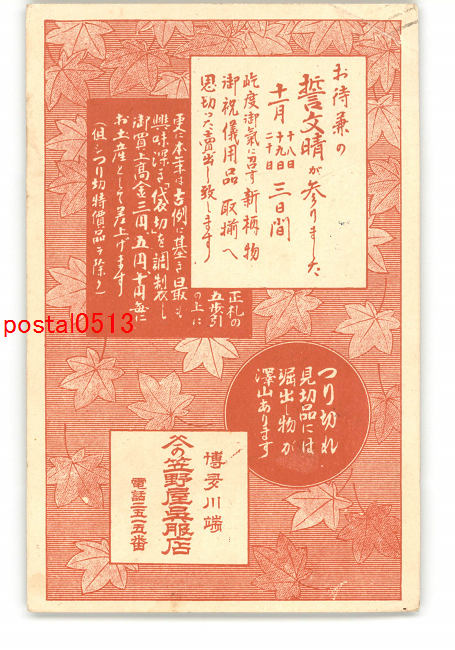 お待兼の
誓文晴が参りました
十一月 十八日 十九日 二十日 三日間
屹度御氣に召す新柄物
御祝儀用品取揃へ
思切つた賣出し致します
正札の
五歩引
の上に
更に本年は吉例に基き最も
興味深き「袋切」を調製し
御買上高金三円五円十円毎に
お土産として差上げます
(但しつり切特價品ヲ除く)
つり切れ
見切品には
掘出し物が
澤山あります
博多川端
笠野屋呉服店
電話二五一五番
postal0513